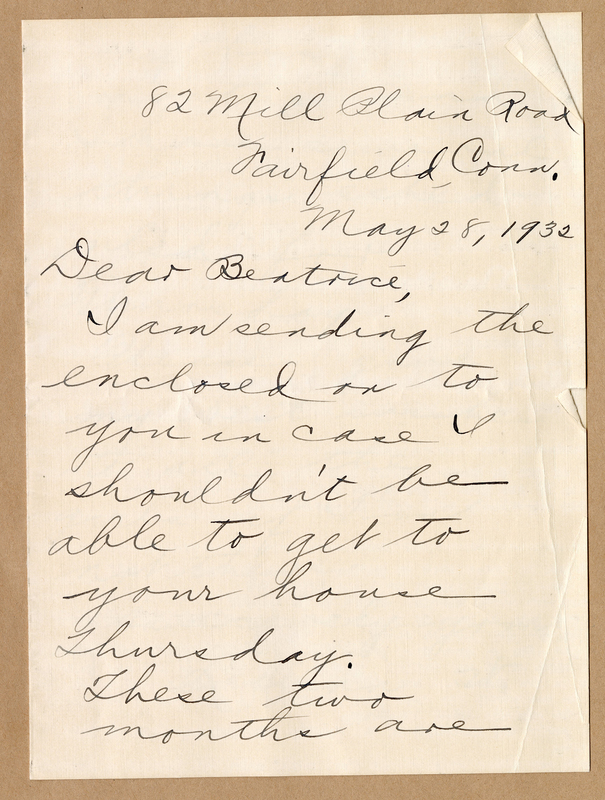 82 Mill Plain Road
Fairfield, Conn.
May 28, 1932
Dear Beatrice,
I am sending the
enclosed on to
you in case I
shouldn't be
able to get to
your house
Thursday.
These two
months are